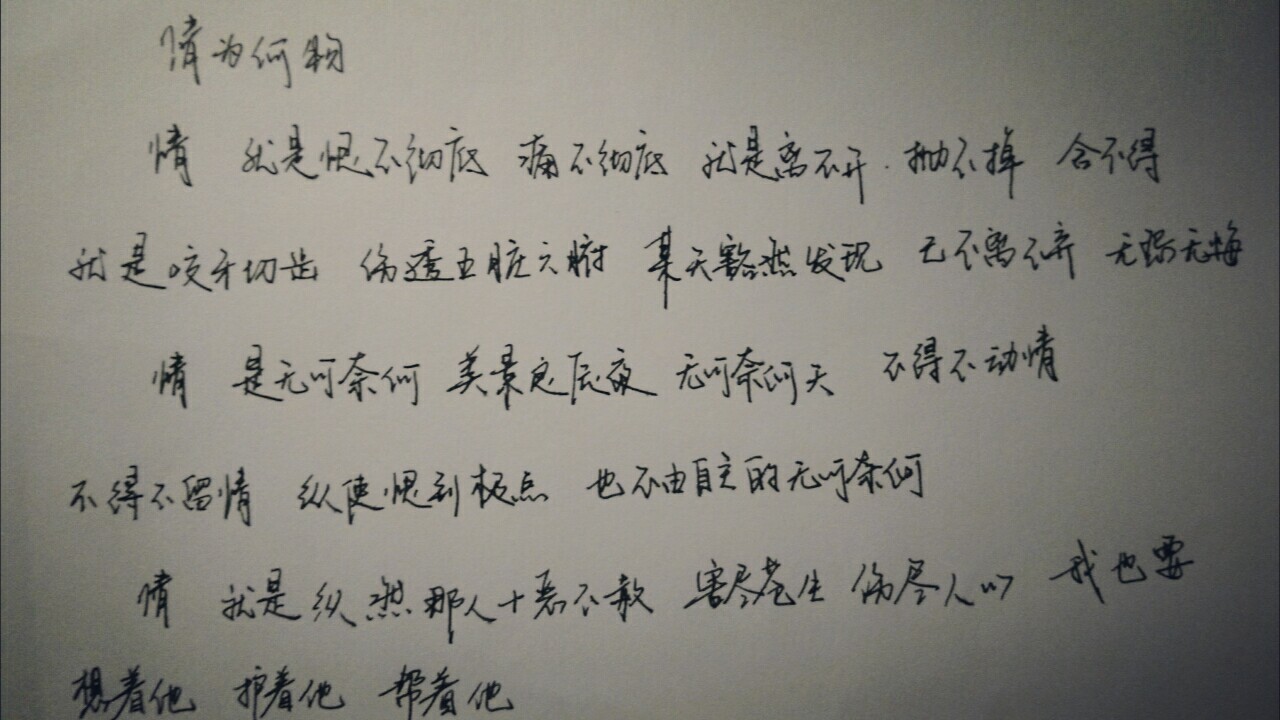 情为何物
情 就是恨不彻底 痛不彻底 就是离不开.抛不掉 舍不得
就是咬牙切齿 伤透五脏六腑 某天豁然发现 已不离不弃 无怨无悔
情 是无可奈何 美景良辰夜 无可奈何天 不得不动情
不得不留情 纵使恨到极点 也不由自主的无可奈何
情 就是纵然那人十恶不赦 害尽苍生 伤尽人心 我也要
想着他 护着他 帮着他